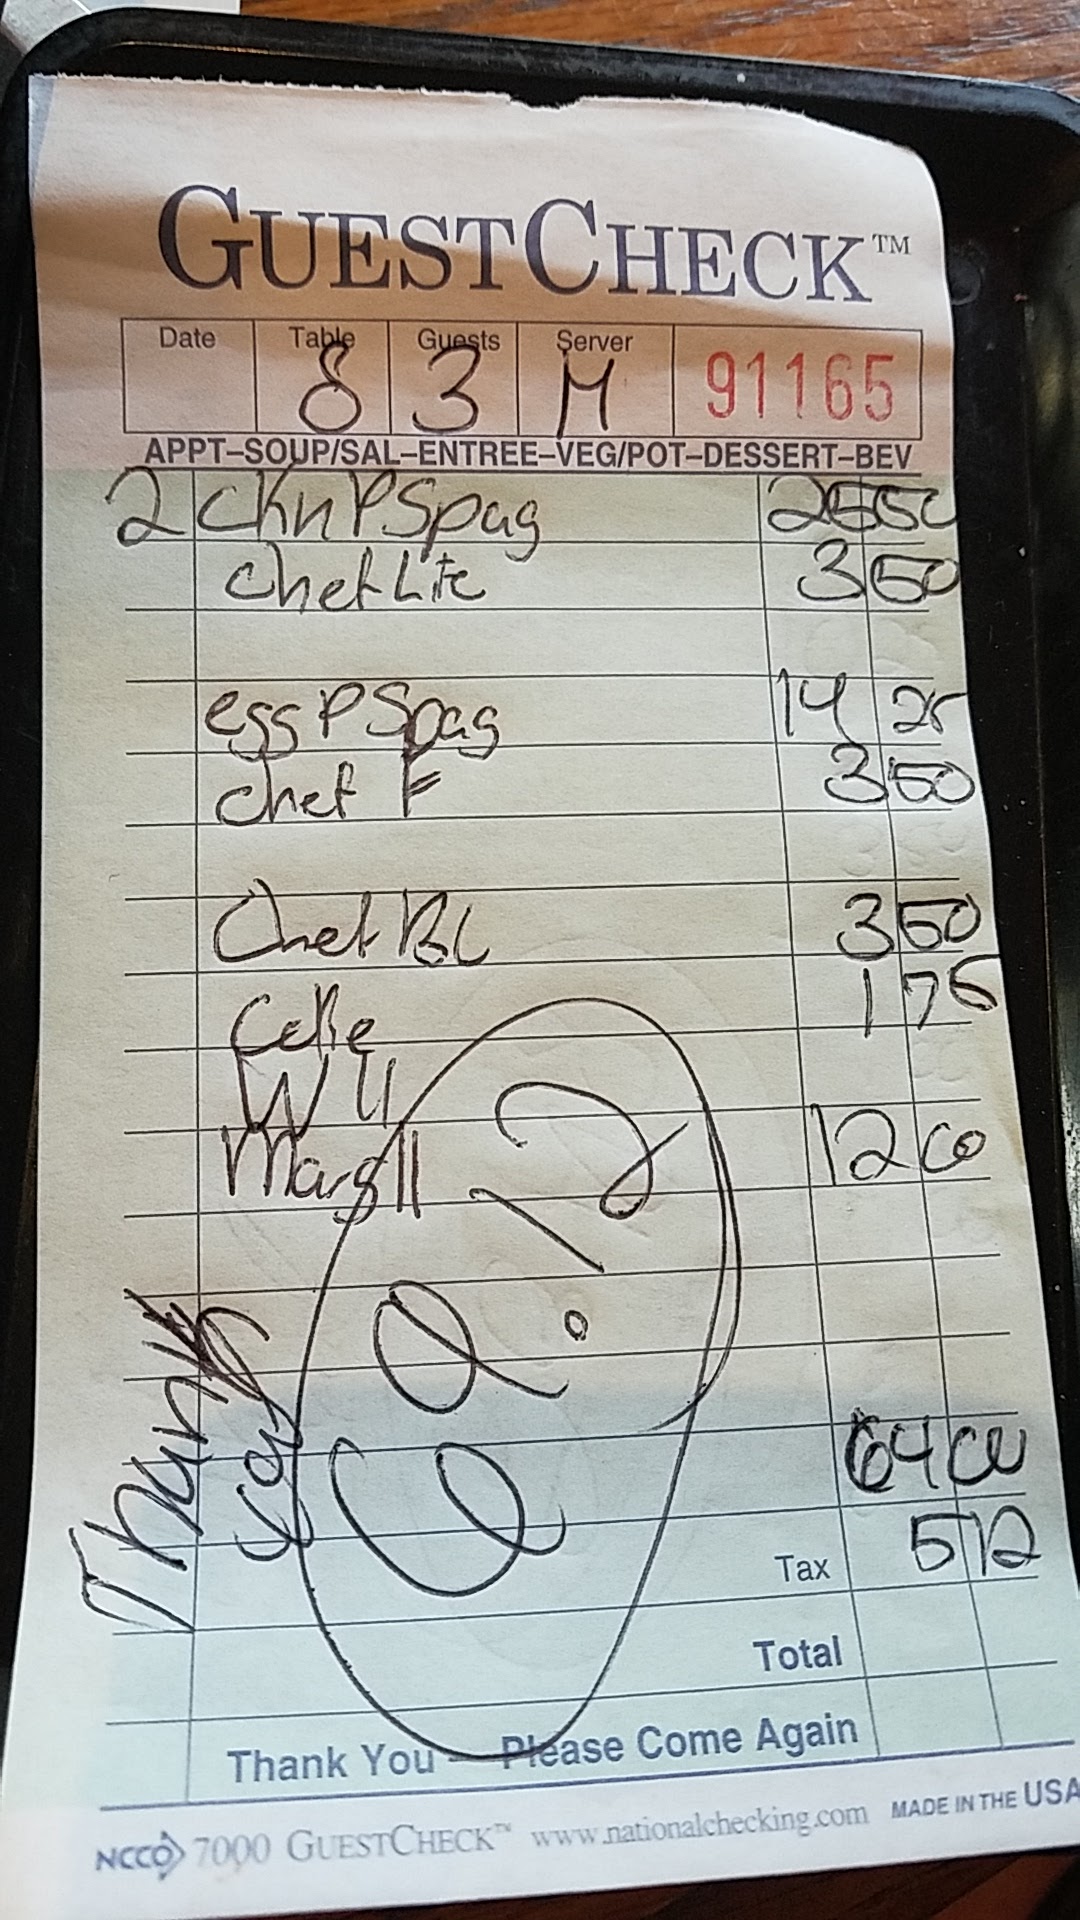 GUESTCHECK™
Date Table Guests Server
8 3 M 91165
APPT–SOUP/SAL–ENTREE–VEG/POT–DESSERT–BEV
2 CKn P Spag 25 50
Chef Lite 3 50
egg P Spag 14 25
Chef F 3 50
Chef BC 3 50
Coke 1 75
W 4
Marg 11 12 00
69.12
Thank You
64 00
Tax 5 12
Total
Thank You — Please Come Again
NCCO 7000 GUESTCHECK™ www.nationalchecking.com MADE IN THE USA